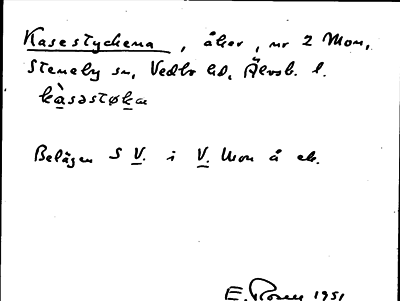 Kasestyckena, åker, nr 2 Mon,
Steneby sn, Vedbo hd, Älvsb. l.
kàsəstøka
Belägen S V. i V. Mon å ek.
E. Rosen 1951